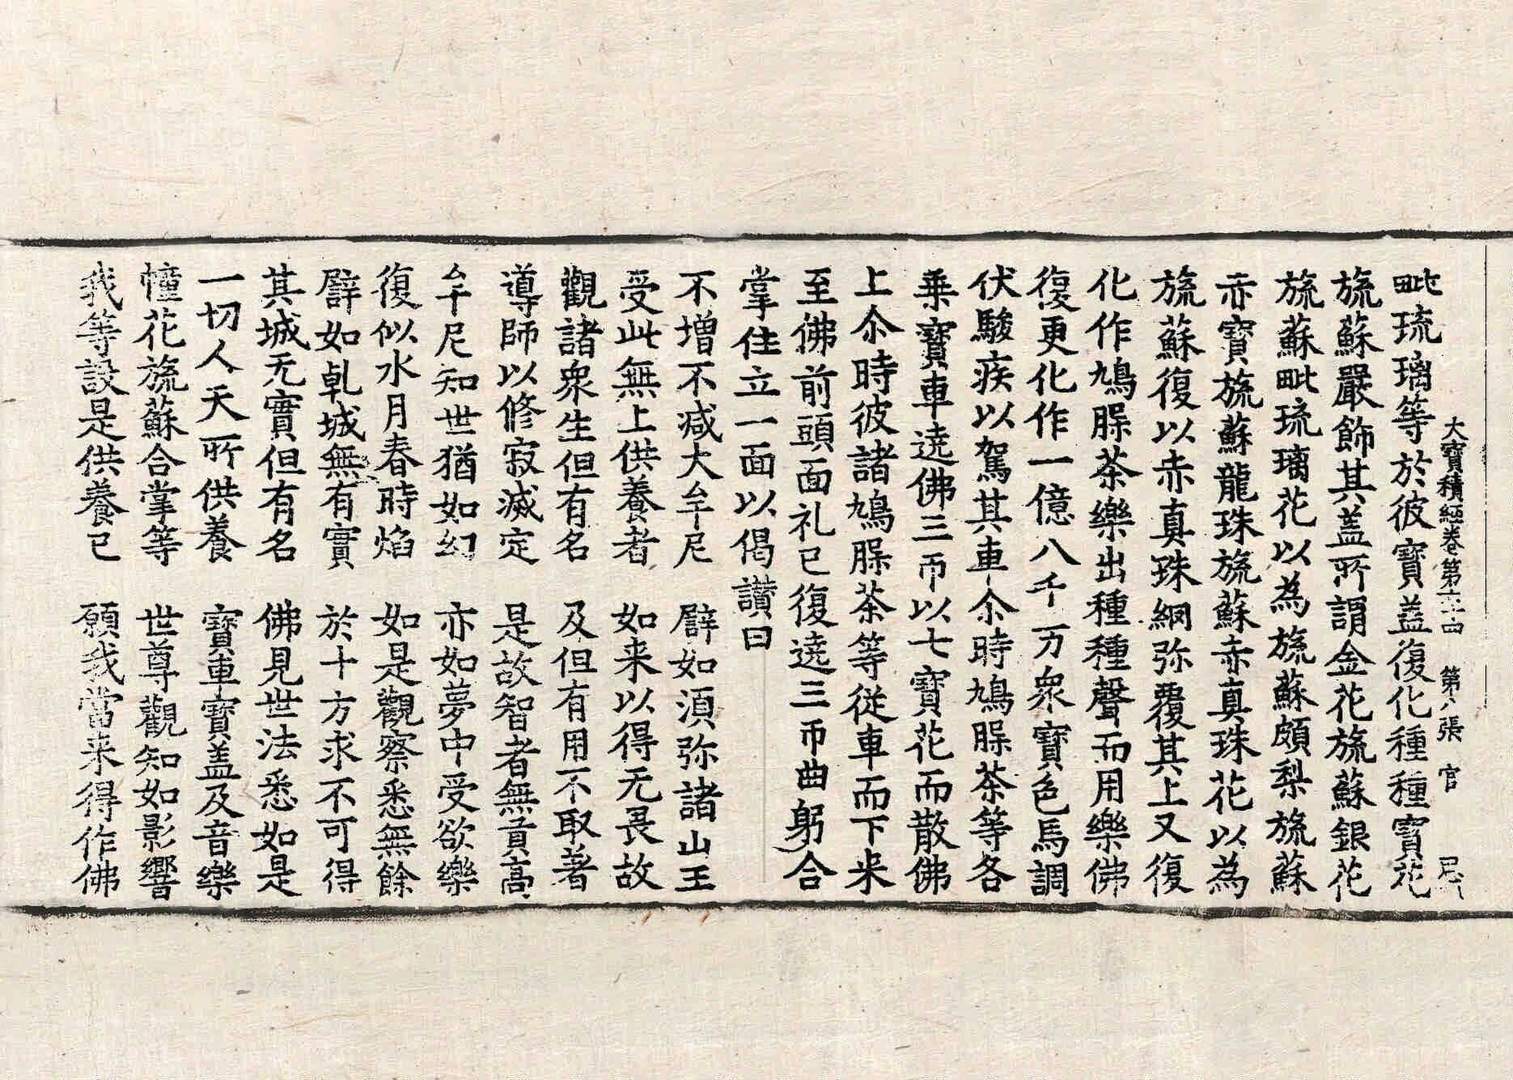 大寶積經卷第六十四 第八張 官
毗琉璃等於彼寶盖復化種種寶花
旒蘇嚴飾其盖所謂金花旒蘇銀花
旒蘇毗琉璃花以為旒蘇頗梨旒蘇
赤寶旒蘇龍珠旒蘇赤真珠花以為
旒蘇復以赤真珠網弥覆其上又復
化作鳩腬荼樂出種種聲而用樂佛
復更化作一億八千万衆寶色馬調
伏駿疾以駕其車尒時鳩腬荼等各
乗寶車遶佛三帀以七寶花而散佛
上尒時彼諸鳩腬荼等從車而下来
至佛前頭面礼已復遶三帀曲躬合
掌住立一面以偈讃曰
不增不減大牟尼 譬如湏弥諸山王
受此無上供養者 如来以得无畏故
觀諸衆生但有名 及但有用不取著
導師以修寂滅定 是故智者無貢高
牟尼知世猶如幻 亦如夢中受欲樂
復似水月春時焰 如是觀察悉無餘
譬如乹城無有實 於十方求不可得
其城无實但有名 佛見世法悉如是
一切人天所供養 寶車寶盖及音樂
幢花旒蘇合掌等 世尊觀知如影響
我等設是供養已 願我當来得作佛